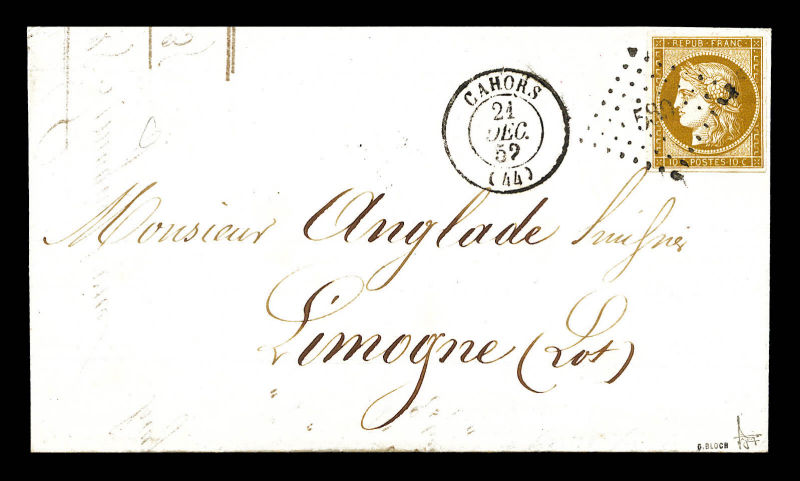 REPUB. FRANC.
10 POSTES 10 C
CAHORS
21
DEC.
52
(44)
Monsieur Anglade
Limogne (Lot)
G. BLOCH